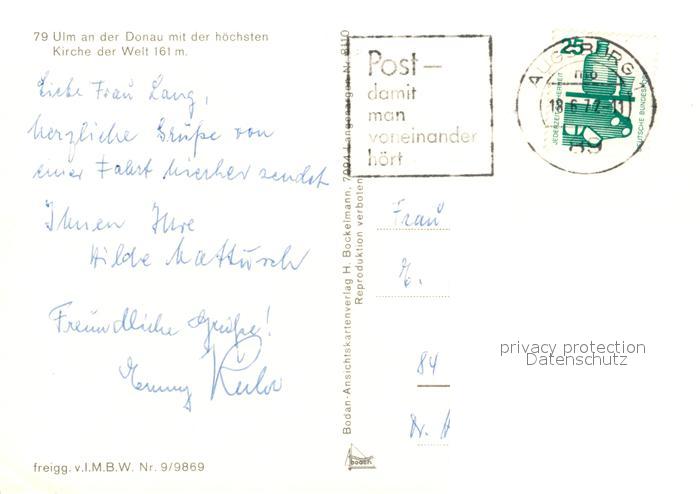 79 Ulm an der Donau mit der höchsten
Kirche der Welt 161 m.
Liebe Frau Lang,
herzliche Grüße von
einer Fahrt hierher sendet
Ihnen Ihre
Hilde
Freundliche Grüße!
freigg. v.I.M.B.W. Nr. 9/9869
Bodan-Ansichtskartenverlag H. Bockelmann, 7994 Langenargen Nr. 8110
Reproduktion verboten
bodan
Post—
damit
man
voneinander
hört
AUGSBURG
18.6.77-11
89
25
JEDERZEIT SICHERHEIT
DEUTSCHE BUNDESPOST
Frau
84
privacy protection
Datenschutz